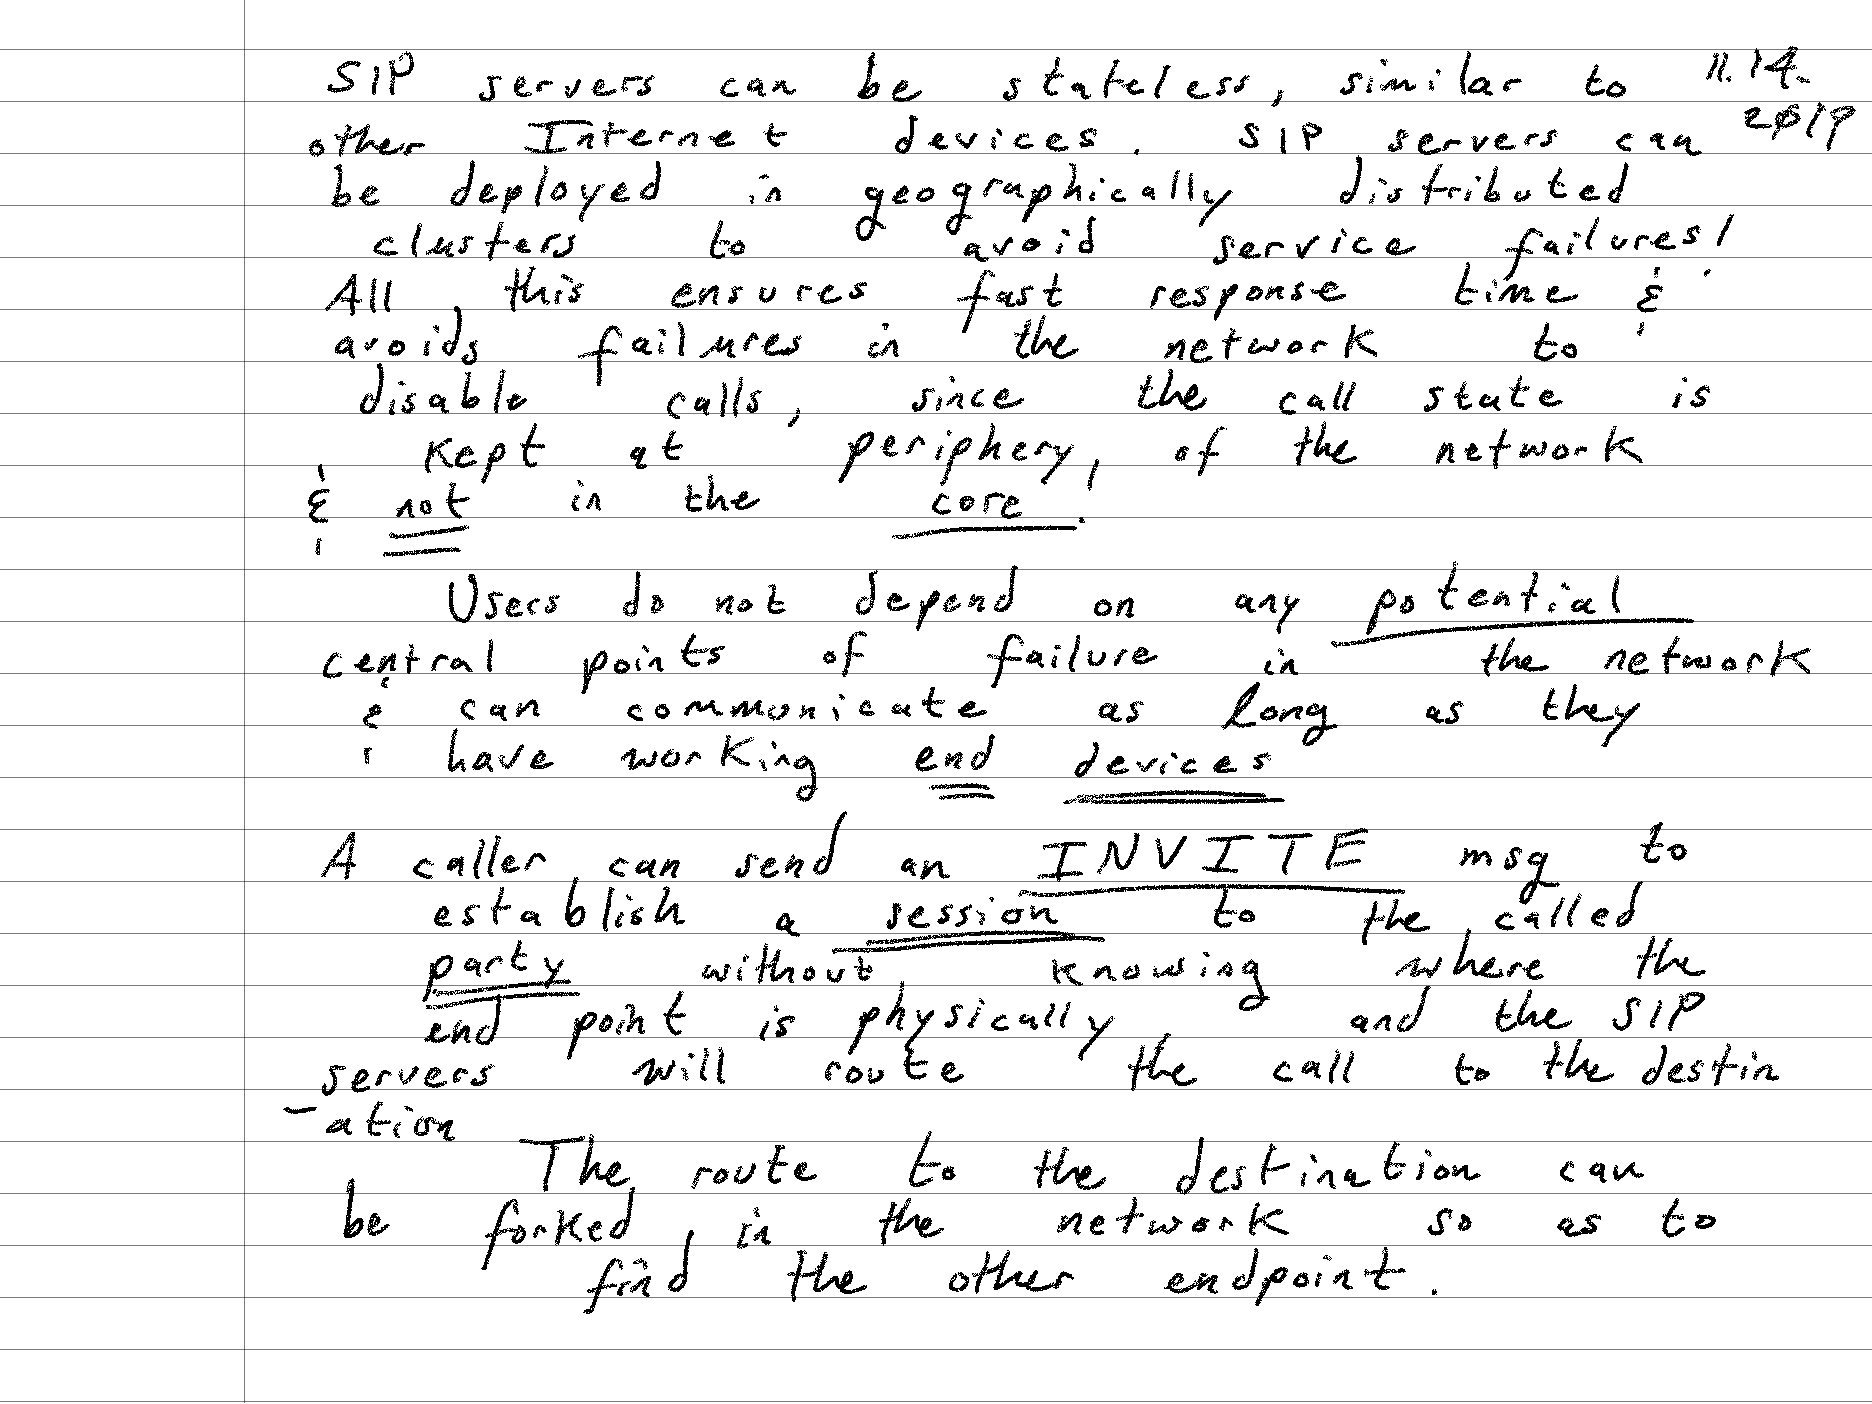 SIP servers can be stateless, similar to 11.14.
2019
other Internet devices. SIP servers can
be deployed in geographically distributed
clusters to avoid service failures!
All this ensures fast response time &
avoids failures in the network to
disable calls, since the call state is
kept at periphery, of the network
& not in the core!
Users do not depend on any potential
central points of failure in the network
& can communicate as long as they
have working end devices
A caller can send an INVITE msg to
establish a session to the called
party without knowing where the
end point is physically and the SIP
servers will route the call to the destin
-ation
The route to the destination can
be forked in the network so as to
find the other endpoint.